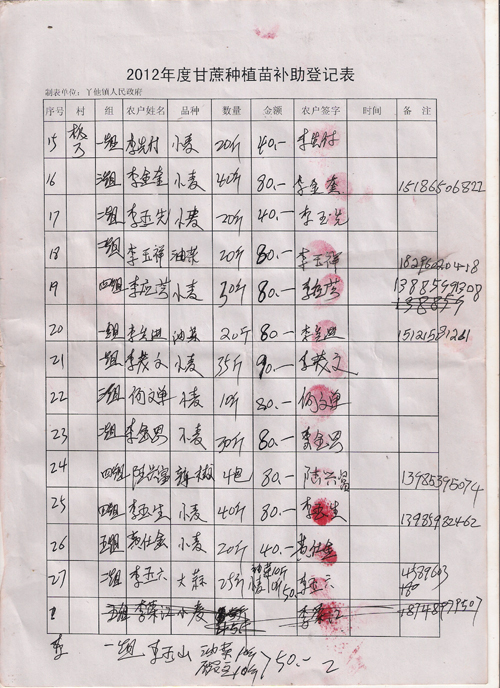 2012年度甘蔗种植苗补助登记表
制表单位：丫他镇人民政府
序号 村 组 农户姓名 品种 数量 金额 农户签字 时间 备 注
15 一组 李先材 小麦 20斤 40.— 李先材
16 二组 李金奎 小麦 40斤 80.— 李金奎 15186506822
17 二组 李玉先 小麦 20斤 40.— 李玉先
18 李玉祥 油菜 20斤 80.— 李玉祥 18296020418
19 四组 李应芸 小麦 30斤 80.— 李应芸 13885591308
20 一组 油菜 20斤 80.— 15121581261
21 一组 李茂文 小麦 35斤 90.— 李茂文
22 二组 何文单 小麦 10斤 80.— 何文单
23 二组 李金男 小麦 30斤 80.— 李金男
24 四组 辣椒 4包 80.— 陆兴品 13985395074
25 四组 李玉生 小麦 40斤 80.— 李玉生 13985982462
26 五组 黄仕金 小麦 20斤 40.— 黄仕金
27 二组 李玉六 大蒜 25斤 50.— 李玉六 4589603
2 五组 李荣江 小麦 李荣江 18748979507
李 一组 李玉山 油菜 10斤 10斤 50.— 2